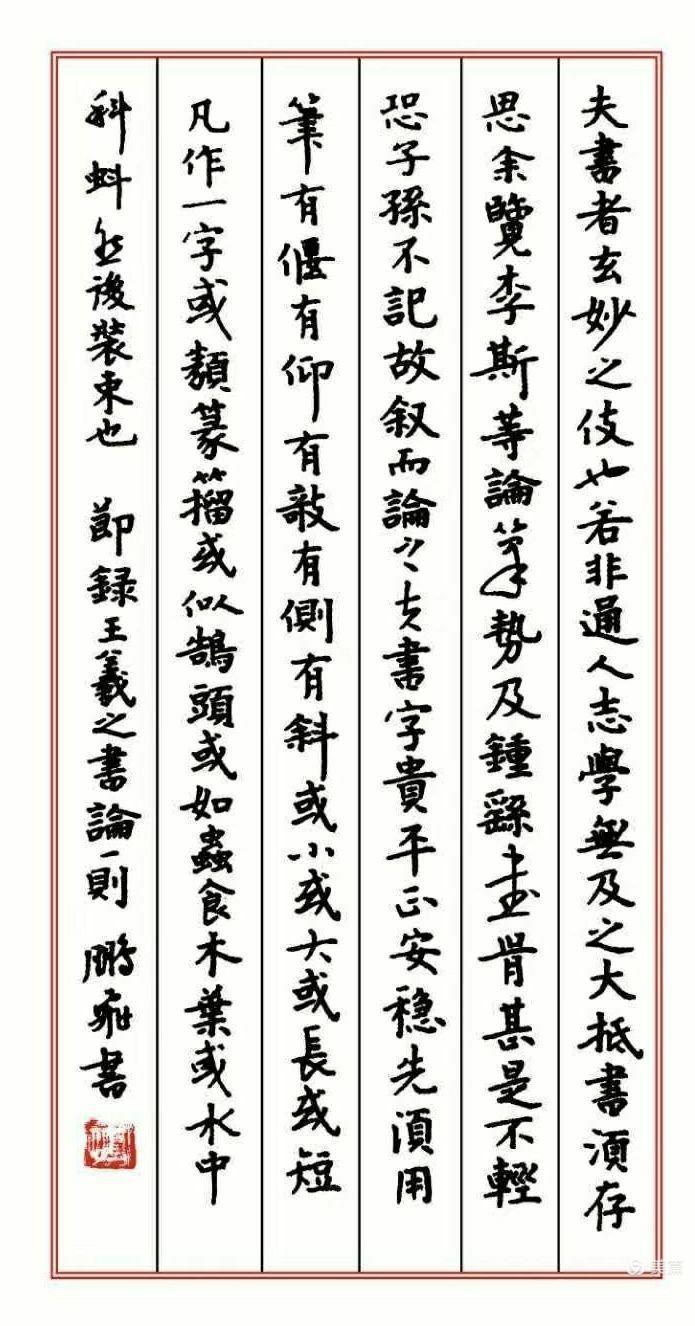 夫書者玄妙之伎也若非通人志學無及之大抵書須存
思余覽李斯等論筆勢及鍾繇書骨甚是不輕
恐子孫不記故叙而論之夫書字貴平正安穩先須用
筆有偃有仰有敧有側有斜或小或大或長或短
凡作一字或類篆籀或似鵠頭或如蟲食木葉或水中
科蚪然後裝束也 節録王羲之書論一則 鵬飛書
美篇